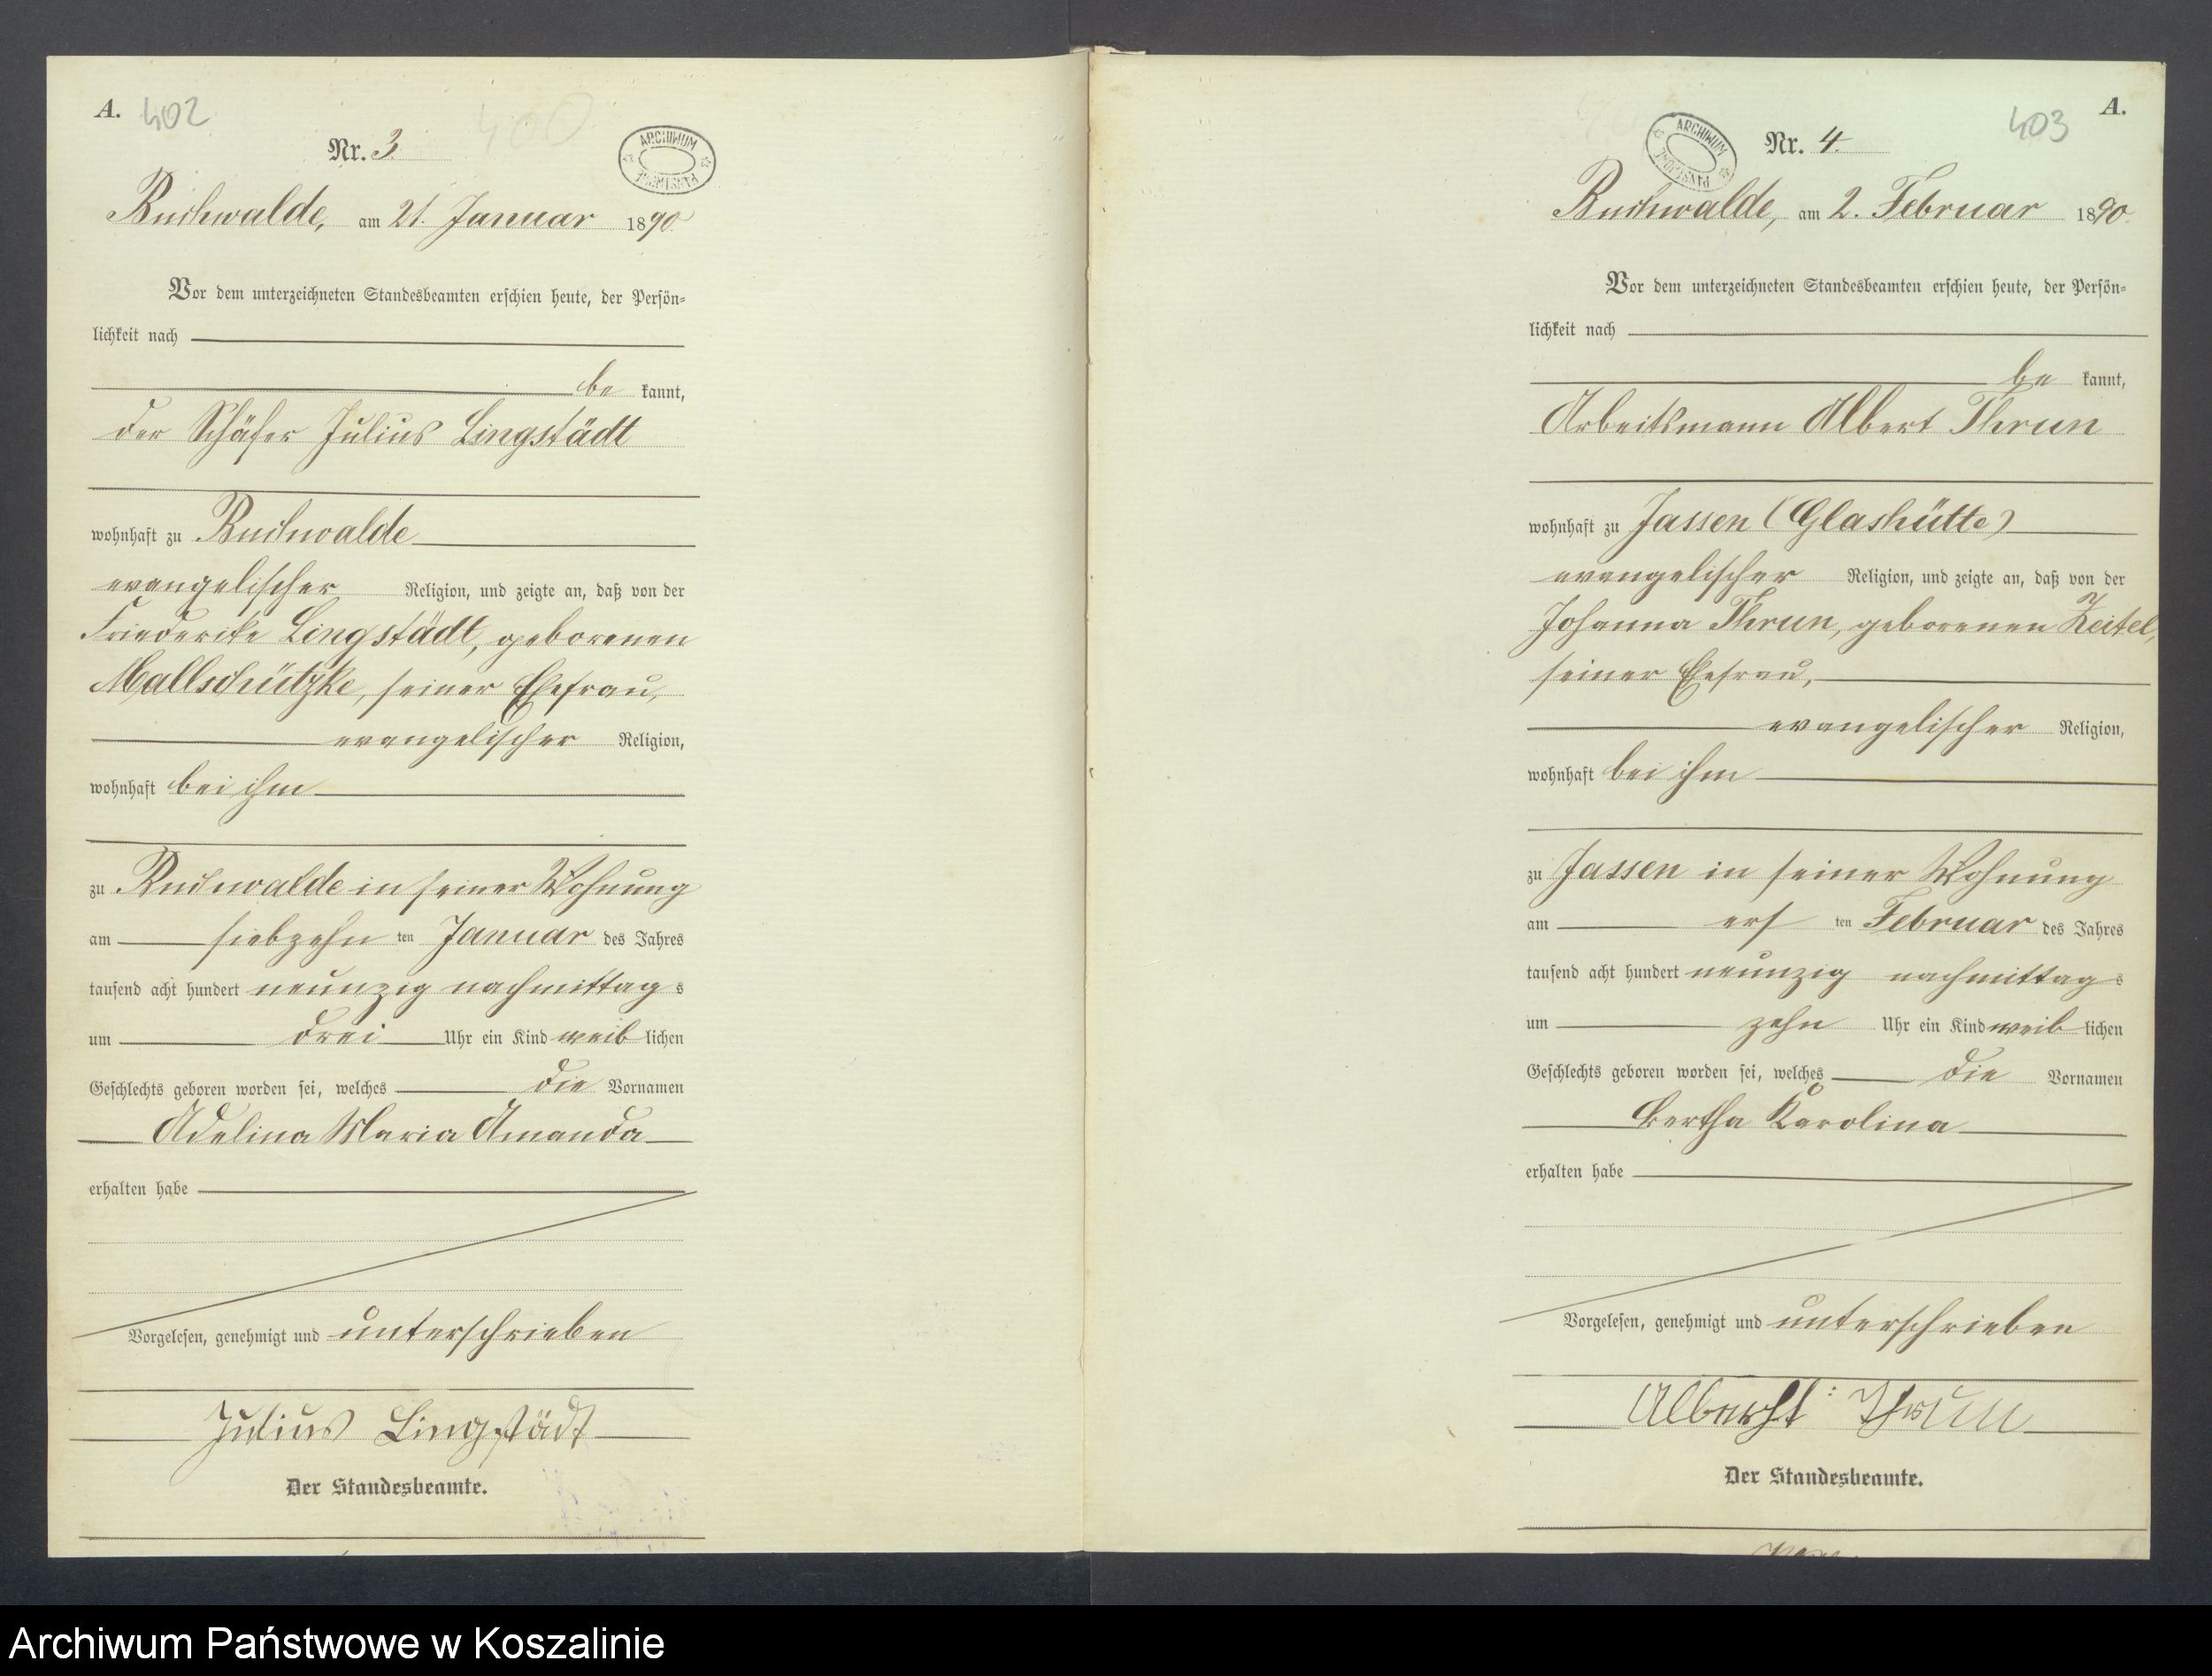 A. 402
400
Nr. 3.
ARCHIWUM
PAŃSTWOWE
Buchwalde, am 21. Januar 1890.
Vor dem unterzeichneten Standesbeamten erschien heute, der Persön-
lichkeit nach
be kannt,
der Schäfer Julius Lingstädt
wohnhaft zu Buchwalde
evangelischer Religion, und zeigte an, daß von der
Friederike Lingstädt, geborenen
Mallschützke, seiner Ehefrau,
evangelischer Religion,
wohnhaft bei ihm
zu Buchwalde in seiner Wohnung
am siebzehn ten Januar des Jahres
tausend acht hundert neunzig nachmittag s
um drei Uhr ein Kind weib lichen
Geschlechts geboren worden sei, welches die Vornamen
Adelina Maria Amanda
erhalten habe
Vorgelesen, genehmigt und unterschrieben
Julius Lingstädt
Der Standesbeamte.
403 A.
Nr. 4.
ARCHIWUM
PAŃSTWOWE
Buchwalde, am 2. Februar 1890.
Vor dem unterzeichneten Standesbeamten erschien heute, der Persön-
lichkeit nach
be kannt,
Arbeitsmann Albert Thrun
wohnhaft zu Jassen (Glashütte)
evangelischer Religion, und zeigte an, daß von der
Johanna Thrun, geborenen Zeitel,
seiner Ehefrau,
evangelischer Religion,
wohnhaft bei ihm
zu Jassen in seiner Wohnung
am ers ten Februar des Jahres
tausend acht hundert neunzig nachmittag s
um zehn Uhr ein Kind weib lichen
Geschlechts geboren worden sei, welches die Vornamen
Bertha Karolina
erhalten habe
Vorgelesen, genehmigt und unterschrieben
Albercht Thrun
Der Standesbeamte.
Archiwum Państwowe w Koszalinie